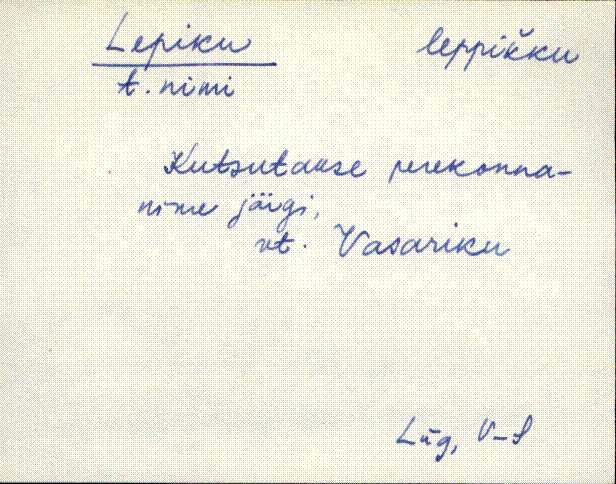 Lepiku leppikku
t. nimi
Kutsutakse perekonna-
nime järgi,
vt. Vasariku
Lüg, V-S